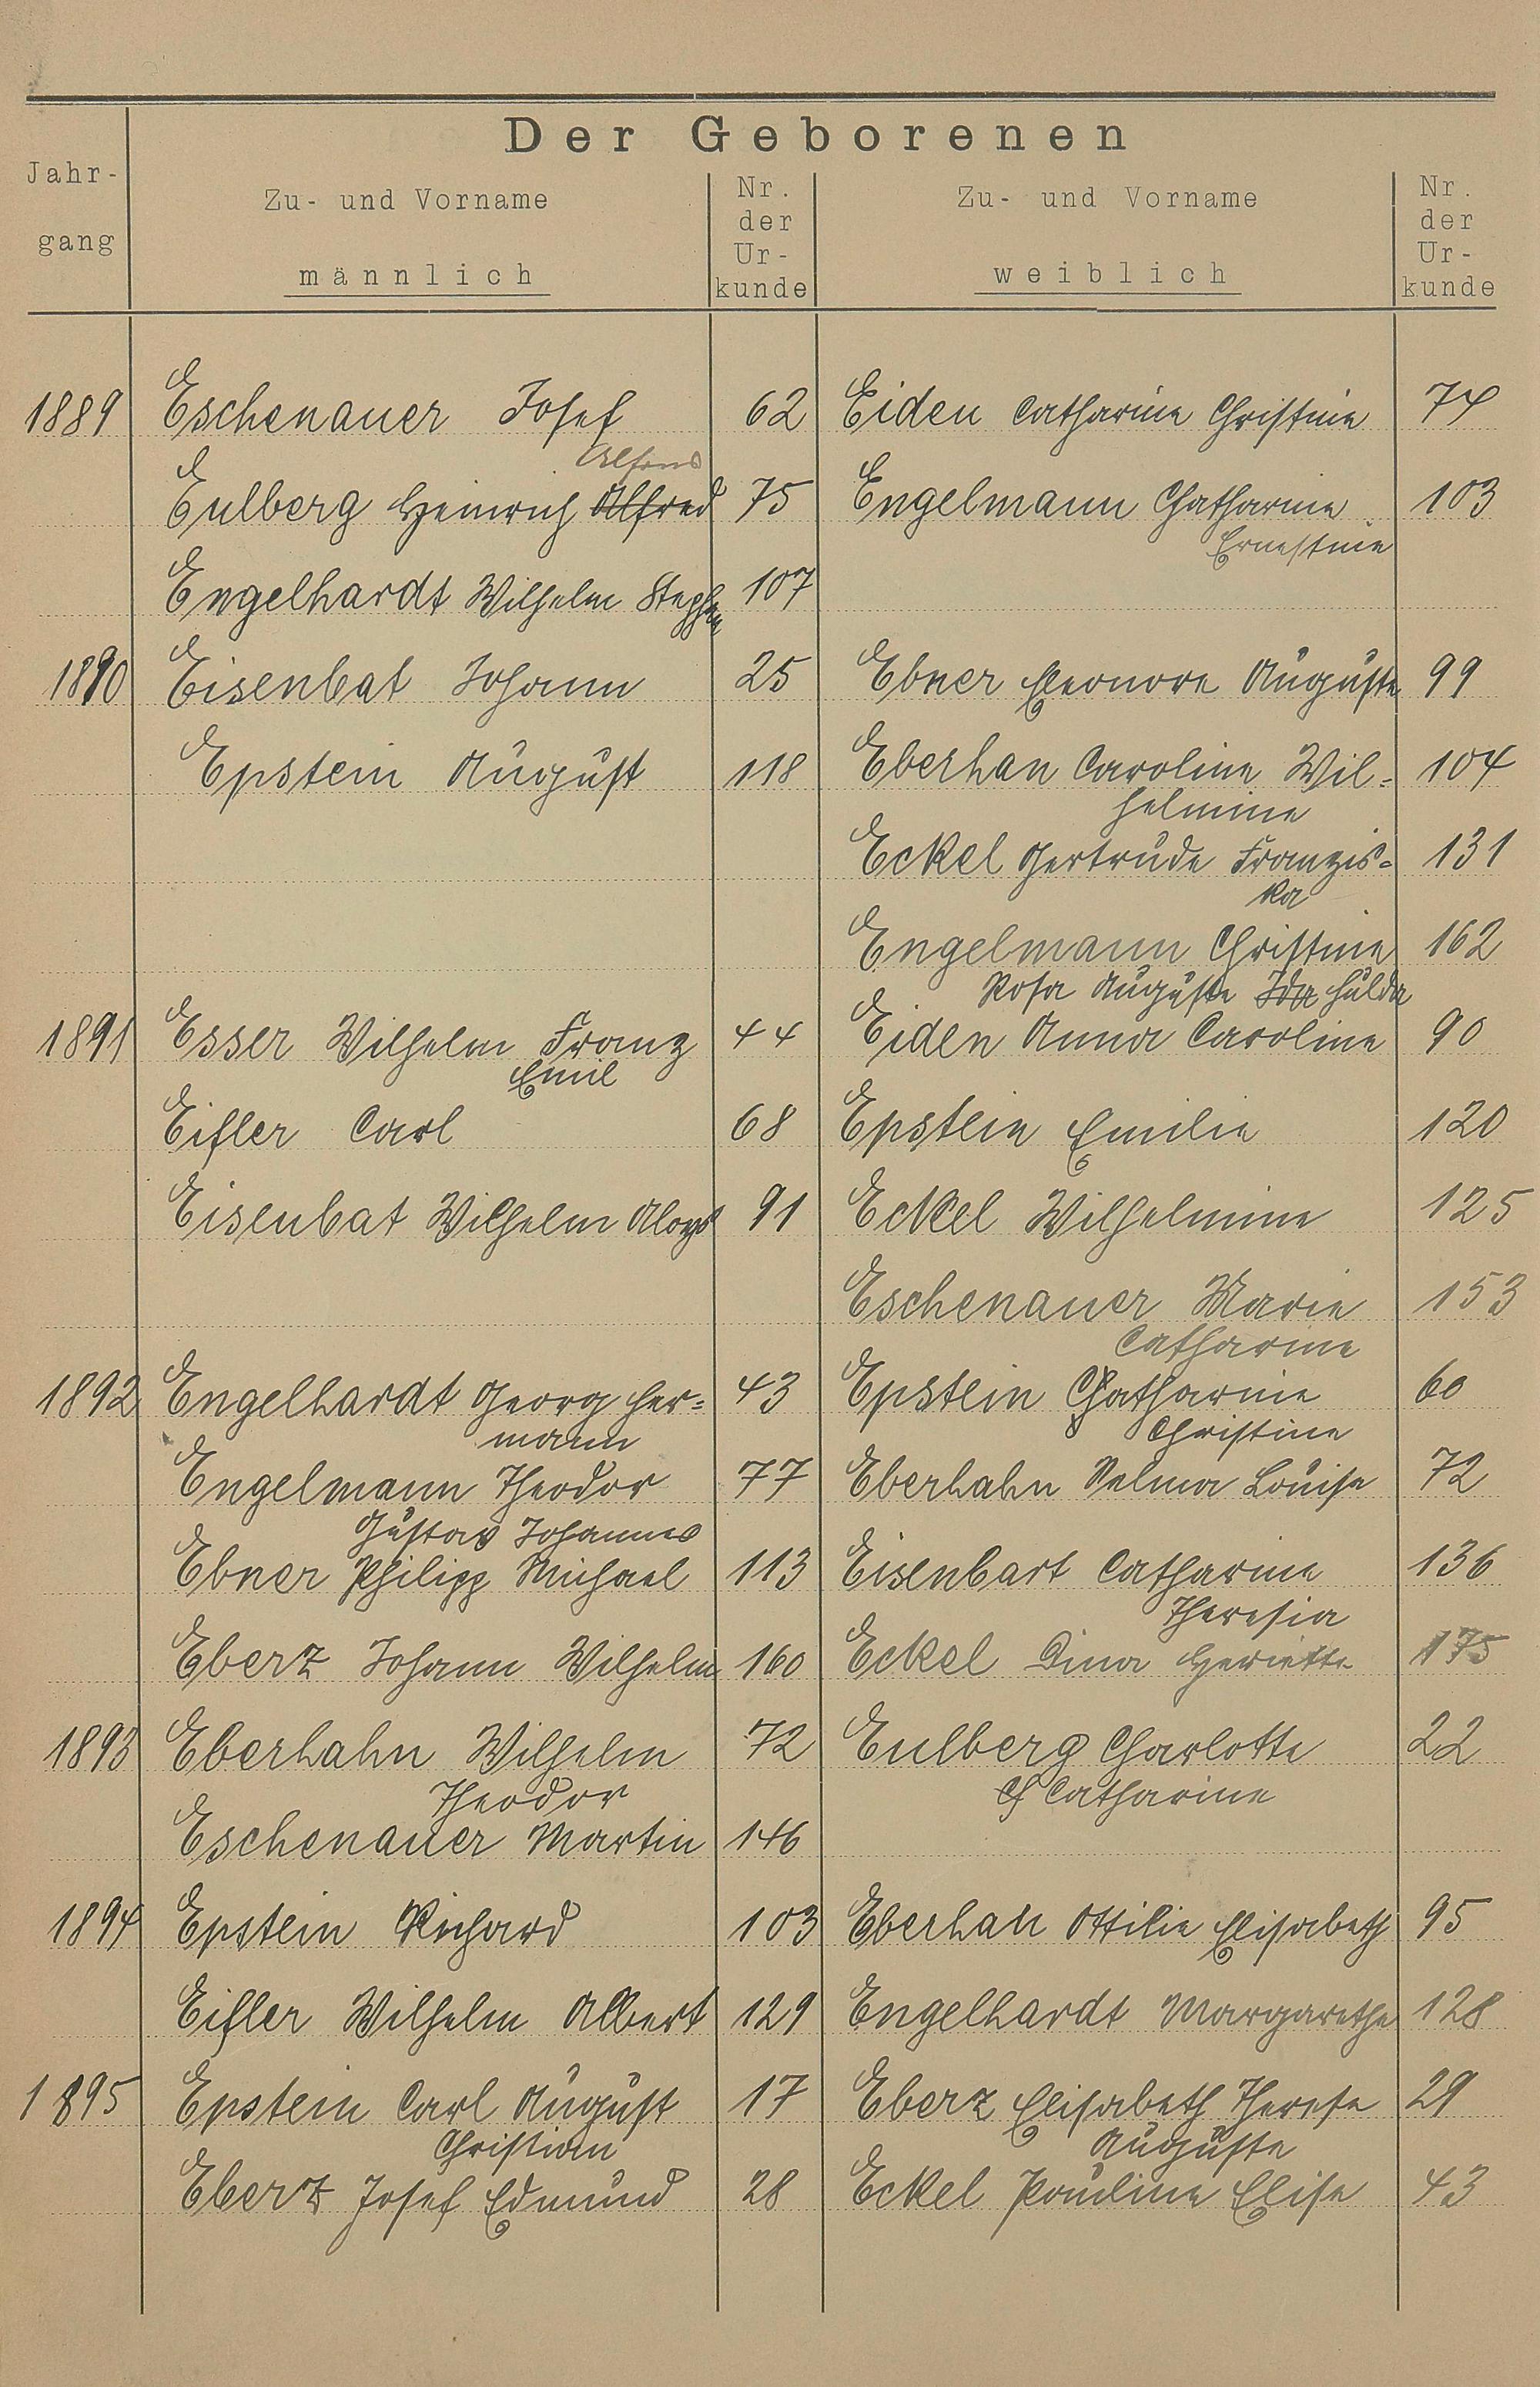 Der Geborenen
Jahr-
gang
Zu- und Vorname
männlich
Nr.
der
Ur-
kunde
Zu- und Vorname
weiblich
Nr.
der
Ur-
kunde
1889 Eschenauer Josef 62 Eiden Catharine Christine 74
Alfons
Eulberg Heinrich Alfred 75 Engelmann Chatharine 103
Ernestine
Engelhardt Wilhelm Stephan 107
1890 Eisenbat Johann 25 Ebner Eleonore Auguste 99
Epstein August 118 Eberhan Caroline Wil= 104
helmine
Eckel Gertrude Franzis= 131
ka
Engelmann Christine 162
Rosa Auguste Ida Hulda
1891 Esser Wilhelm Franz 44 Eiden Anna Caroline 90
Emil
Eifler Carl 68 Epstein Emilie 120
Eisenbat Wilhelm Aloys 91 Eckel Wilhelmine 125
Eschenauer Marie 153
Catharine
1892 Engelhardt Georg Her= 43 Epstein Chatharine 60
mann Christine
Engelmann Theodor 77 Eberhahn Selma Louise 72
Gustav Johannes
Ebner Philipp Michael 113 Eisenbart Catharine 136
Theresia
Eberz Johann Wilhelm 160 Eckel Dina Heriette 175
1893 Eberhahn Wilhelm 72 Eulberg Charlotte 22
Theodor Ch Catharine
Eschenauer Martin 146
1894 Epstein Richard 103 Eberhan Ottilie Elisabeth 95
Eifler Wilhelm Albert 129 Engelhardt Margarethe 128
1895 Epstein Carl August 17 Eberz Elisabeth Therese 29
Christian Auguste
Eberz Josef Edmund 28 Eckel Pauline Elise 43